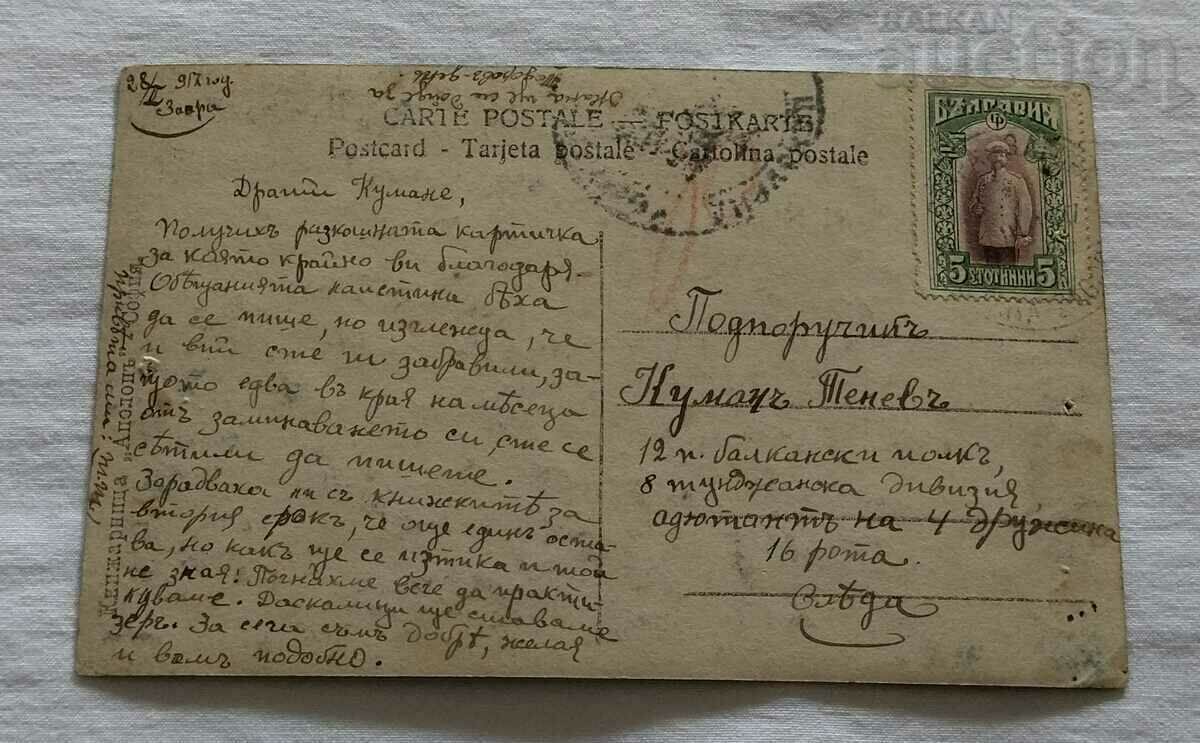 BALKAN
auction
28/II 917 год.
Загра
Жана ще си дойде за
CARTE POSTALE — POSTKARTE
Postcard - Tarjeta postale - Cartolina postale
БЪЛГАРИЯ
5 СТОТИНКИ 5
Драгий Кумане,
Получихъ разкошната картичка
за която крайно ви благодаря.
Обѣщанията наистина бѣха
да се пише, но изглежда, че
и вий сте ги забравили, за-
щото едва въ края на мѣсеца
отъ заминаването си, сте се
сѣтили да пишете.
Зарадваха ни съ книжкитѣ за
втория срокъ, че още единъ оста-
ва, но какъ ще се изтика и той
не зная! Почнахме вече да практи-
куваме. Даскалици ще ставаме
зеръ. За сега съмъ добрѣ, желая
и вамъ подобно.
Книжарница „Аполонъ“ София
Подпоручикъ
Куманъ Теневъ
12 п. балкански полкъ,
8 тунджанска дивизия
адютантъ на 4 дружина
16 рота.
Слѣда